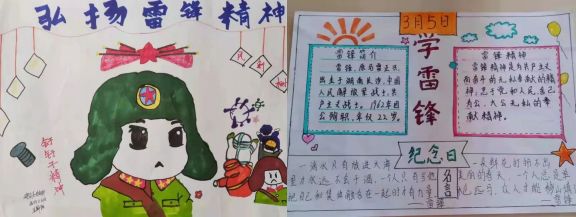 弘扬雷锋精神
钉钉子精神
3月5日
学雷锋
雷锋简介
雷锋,原名雷正兴,
出生于湖南长沙,中国
人民解放军战士,共
产主义战士。1962年因
公殉职,年仅22岁。
雷锋精神
雷锋精神是为共产主义
而奋斗的无私奉献的精
神,忠于党和人民,舍己
为公,大公无私的奉
献精神。
纪念日
一滴水只有放进大海
里才永远不会干涸,一个人只有当
他把自己和集体融合在一起时才有力量
——雷锋
名言
一朵鲜花打扮不出
美丽的春天,一个人先进总
——雷锋